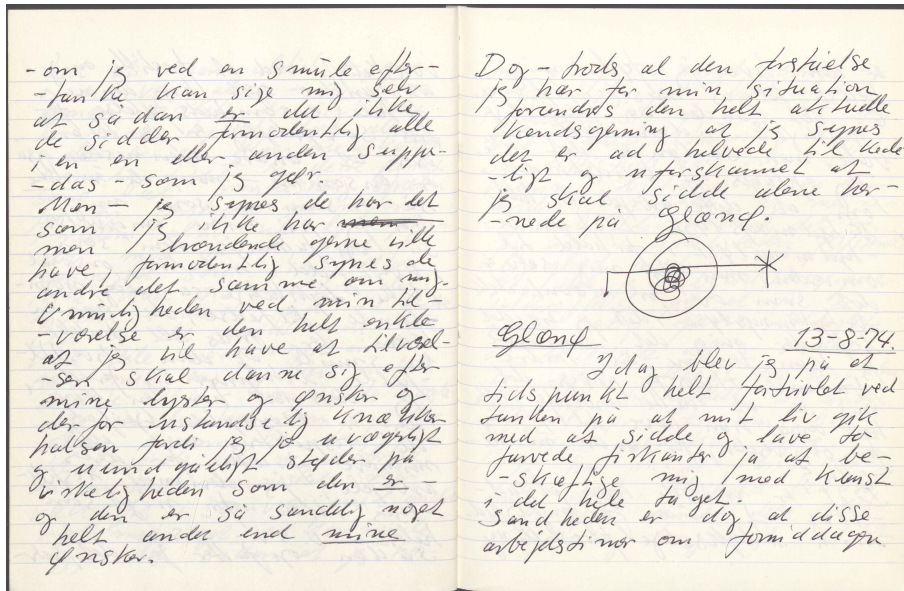 -om jeg ved en smule efter-
-tanke kan sige mig selv
at sådan er det ikke
de sidder formodentlig alle
i en en eller anden suppe-
-das - som jeg gør
Men - jeg synes de har det
som jeg ikke har
men brændende gerne ville
have, formodentlig synes de
andre det samme om mig.
Umuligheden ved min til-
-værelse er den helt enkle
at jeg vil have at tilværel-
-sen skal danne sig efter
mine lyster og ønsker og
derfor ustandselig knækker
halsen fordi jeg jo uvægerligt
og uundgåeligt støder på
virkeligheden som den er -
og den er så sandelig noget
helt andet end mine
ønsker.
Dog - trods al den forståelse
jeg har for min situation
forandres den helt aktuelle
kendsgerning at jeg synes
det er ad helvede til kede
-ligt og uforskammet at
jeg skal sidde alene her-
-nede på Glænø.
Glænø 13-8-74.
I dag blev jeg på et
tidspunkt helt fortvivlet ved
tanken på at mit liv gik
med at sidde og lave to
farvede firkanter ja at be-
-skæftige mig med kunst
i det hele taget.
Sandheden er dog at disse
arbejdstimer om formiddagen